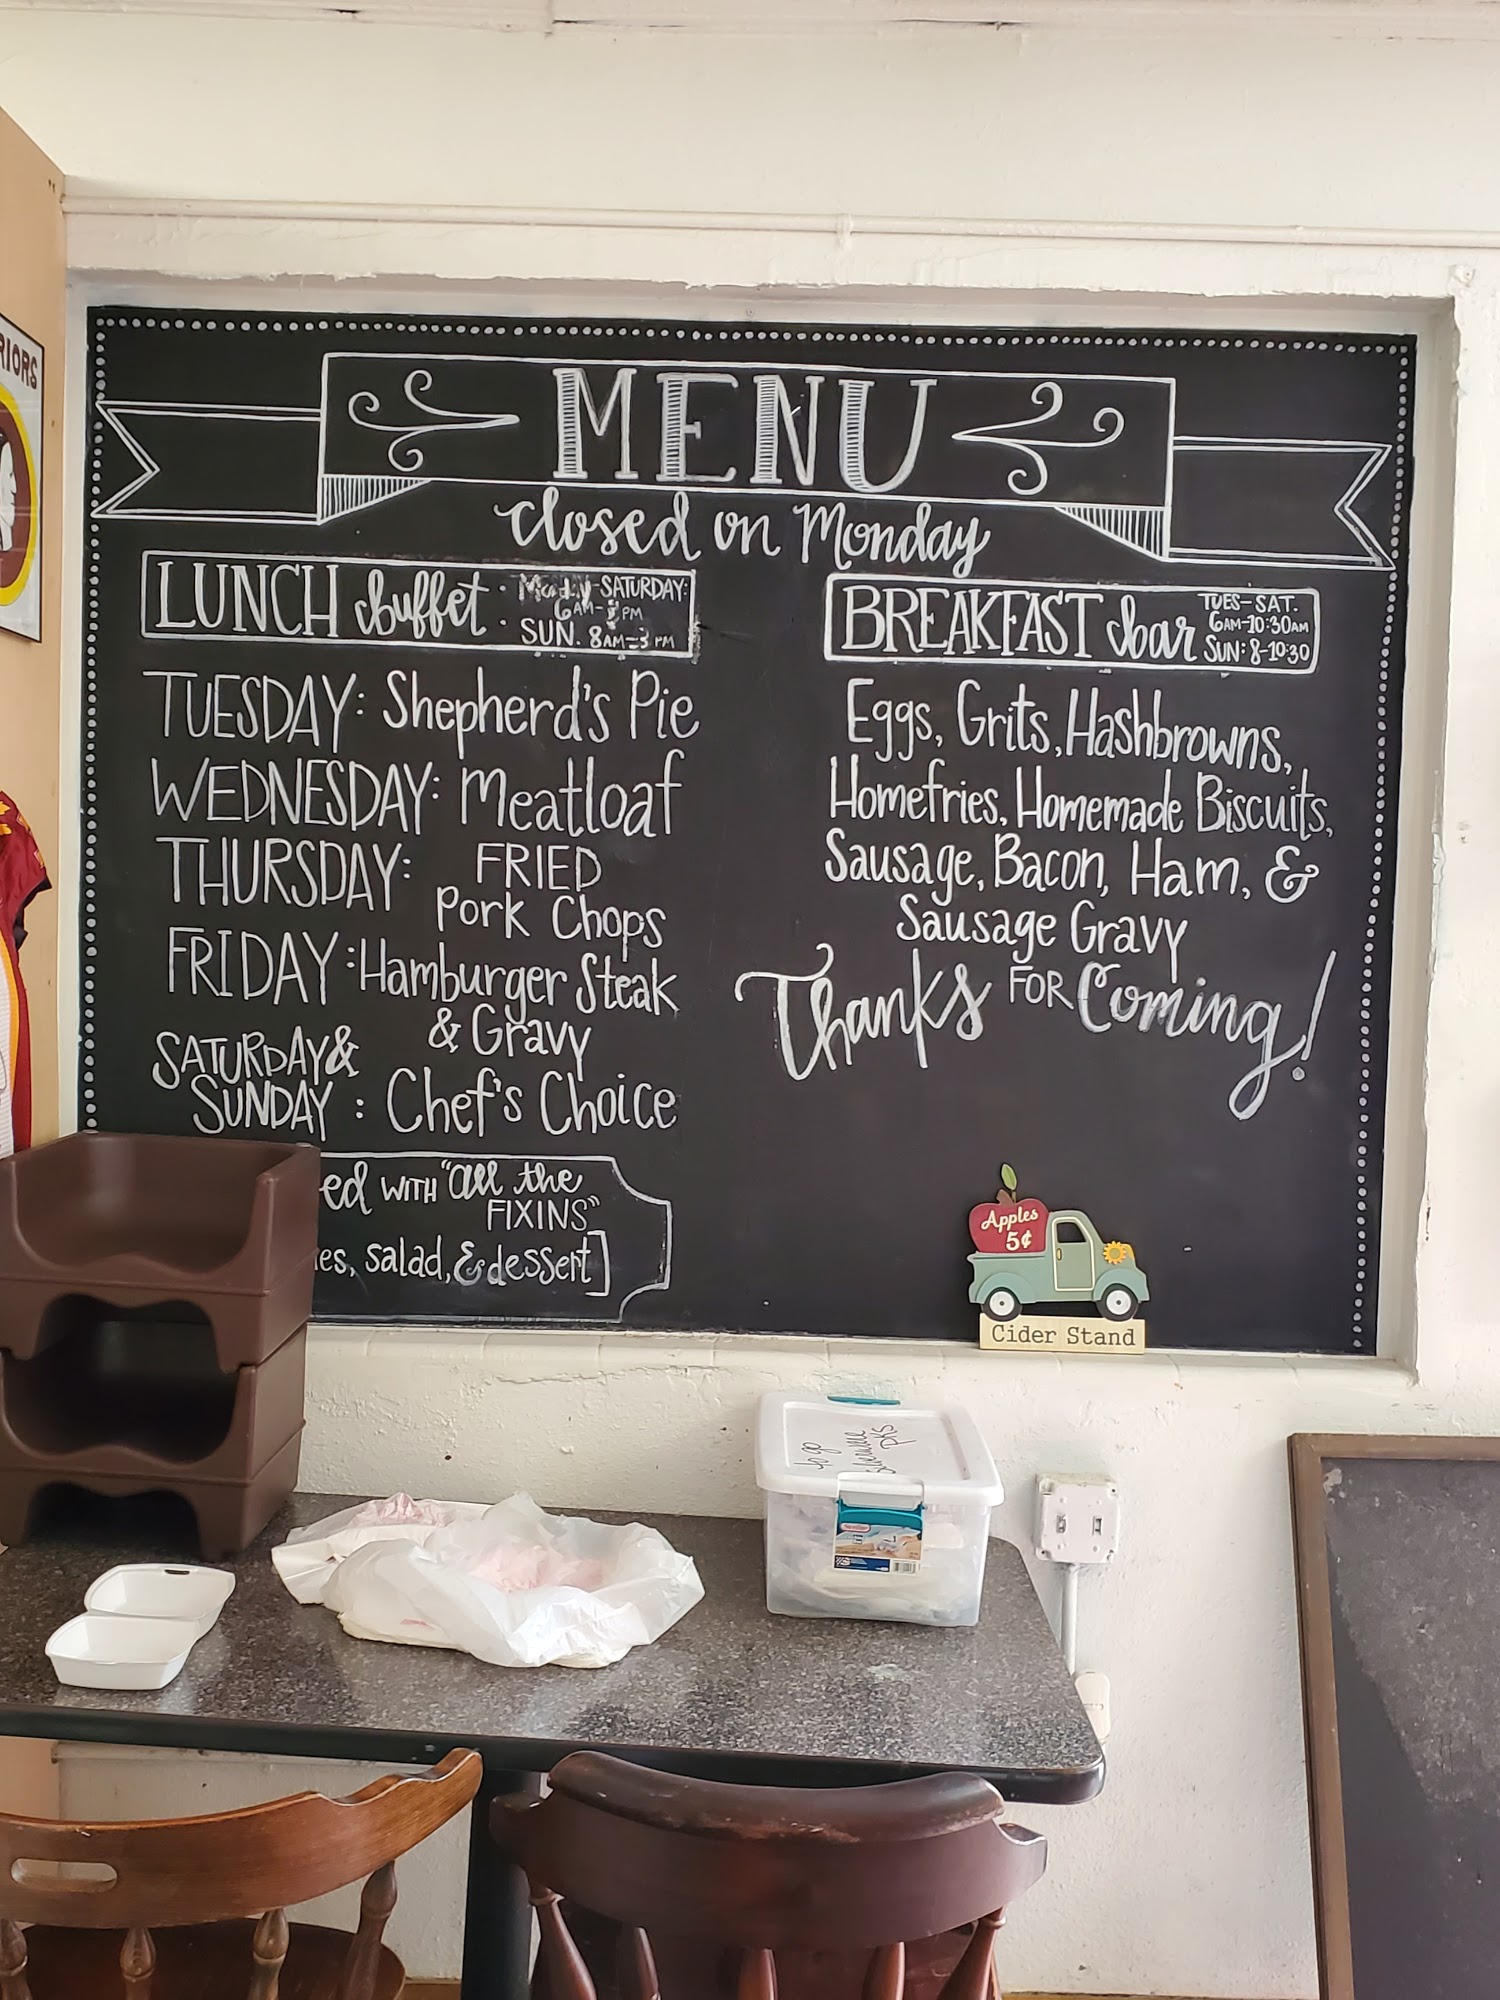 RIORS
MENU
closed on Monday
LUNCH buffet: SATURDAY:
6AM- PM
SUN. 8AM-3 PM
TUESDAY: Shepherd's Pie
WEDNESDAY: Meatloaf
THURSDAY: FRIED
Pork Chops
FRIDAY: Hamburger Steak
& Gravy
SATURDAY &
SUNDAY : Chef's Choice
ed WITH "all the
FIXINS"
es, salad, & dessert]
BREAKFAST bar
TUES-SAT.
6AM-10:30AM
SUN: 8-10:30
Eggs, Grits, Hashbrowns,
Homefries, Homemade Biscuits,
Sausage, Bacon, Ham, &
Sausage Gravy
Thanks FOR Coming!
Apples
5¢
Cider Stand
to go
pks